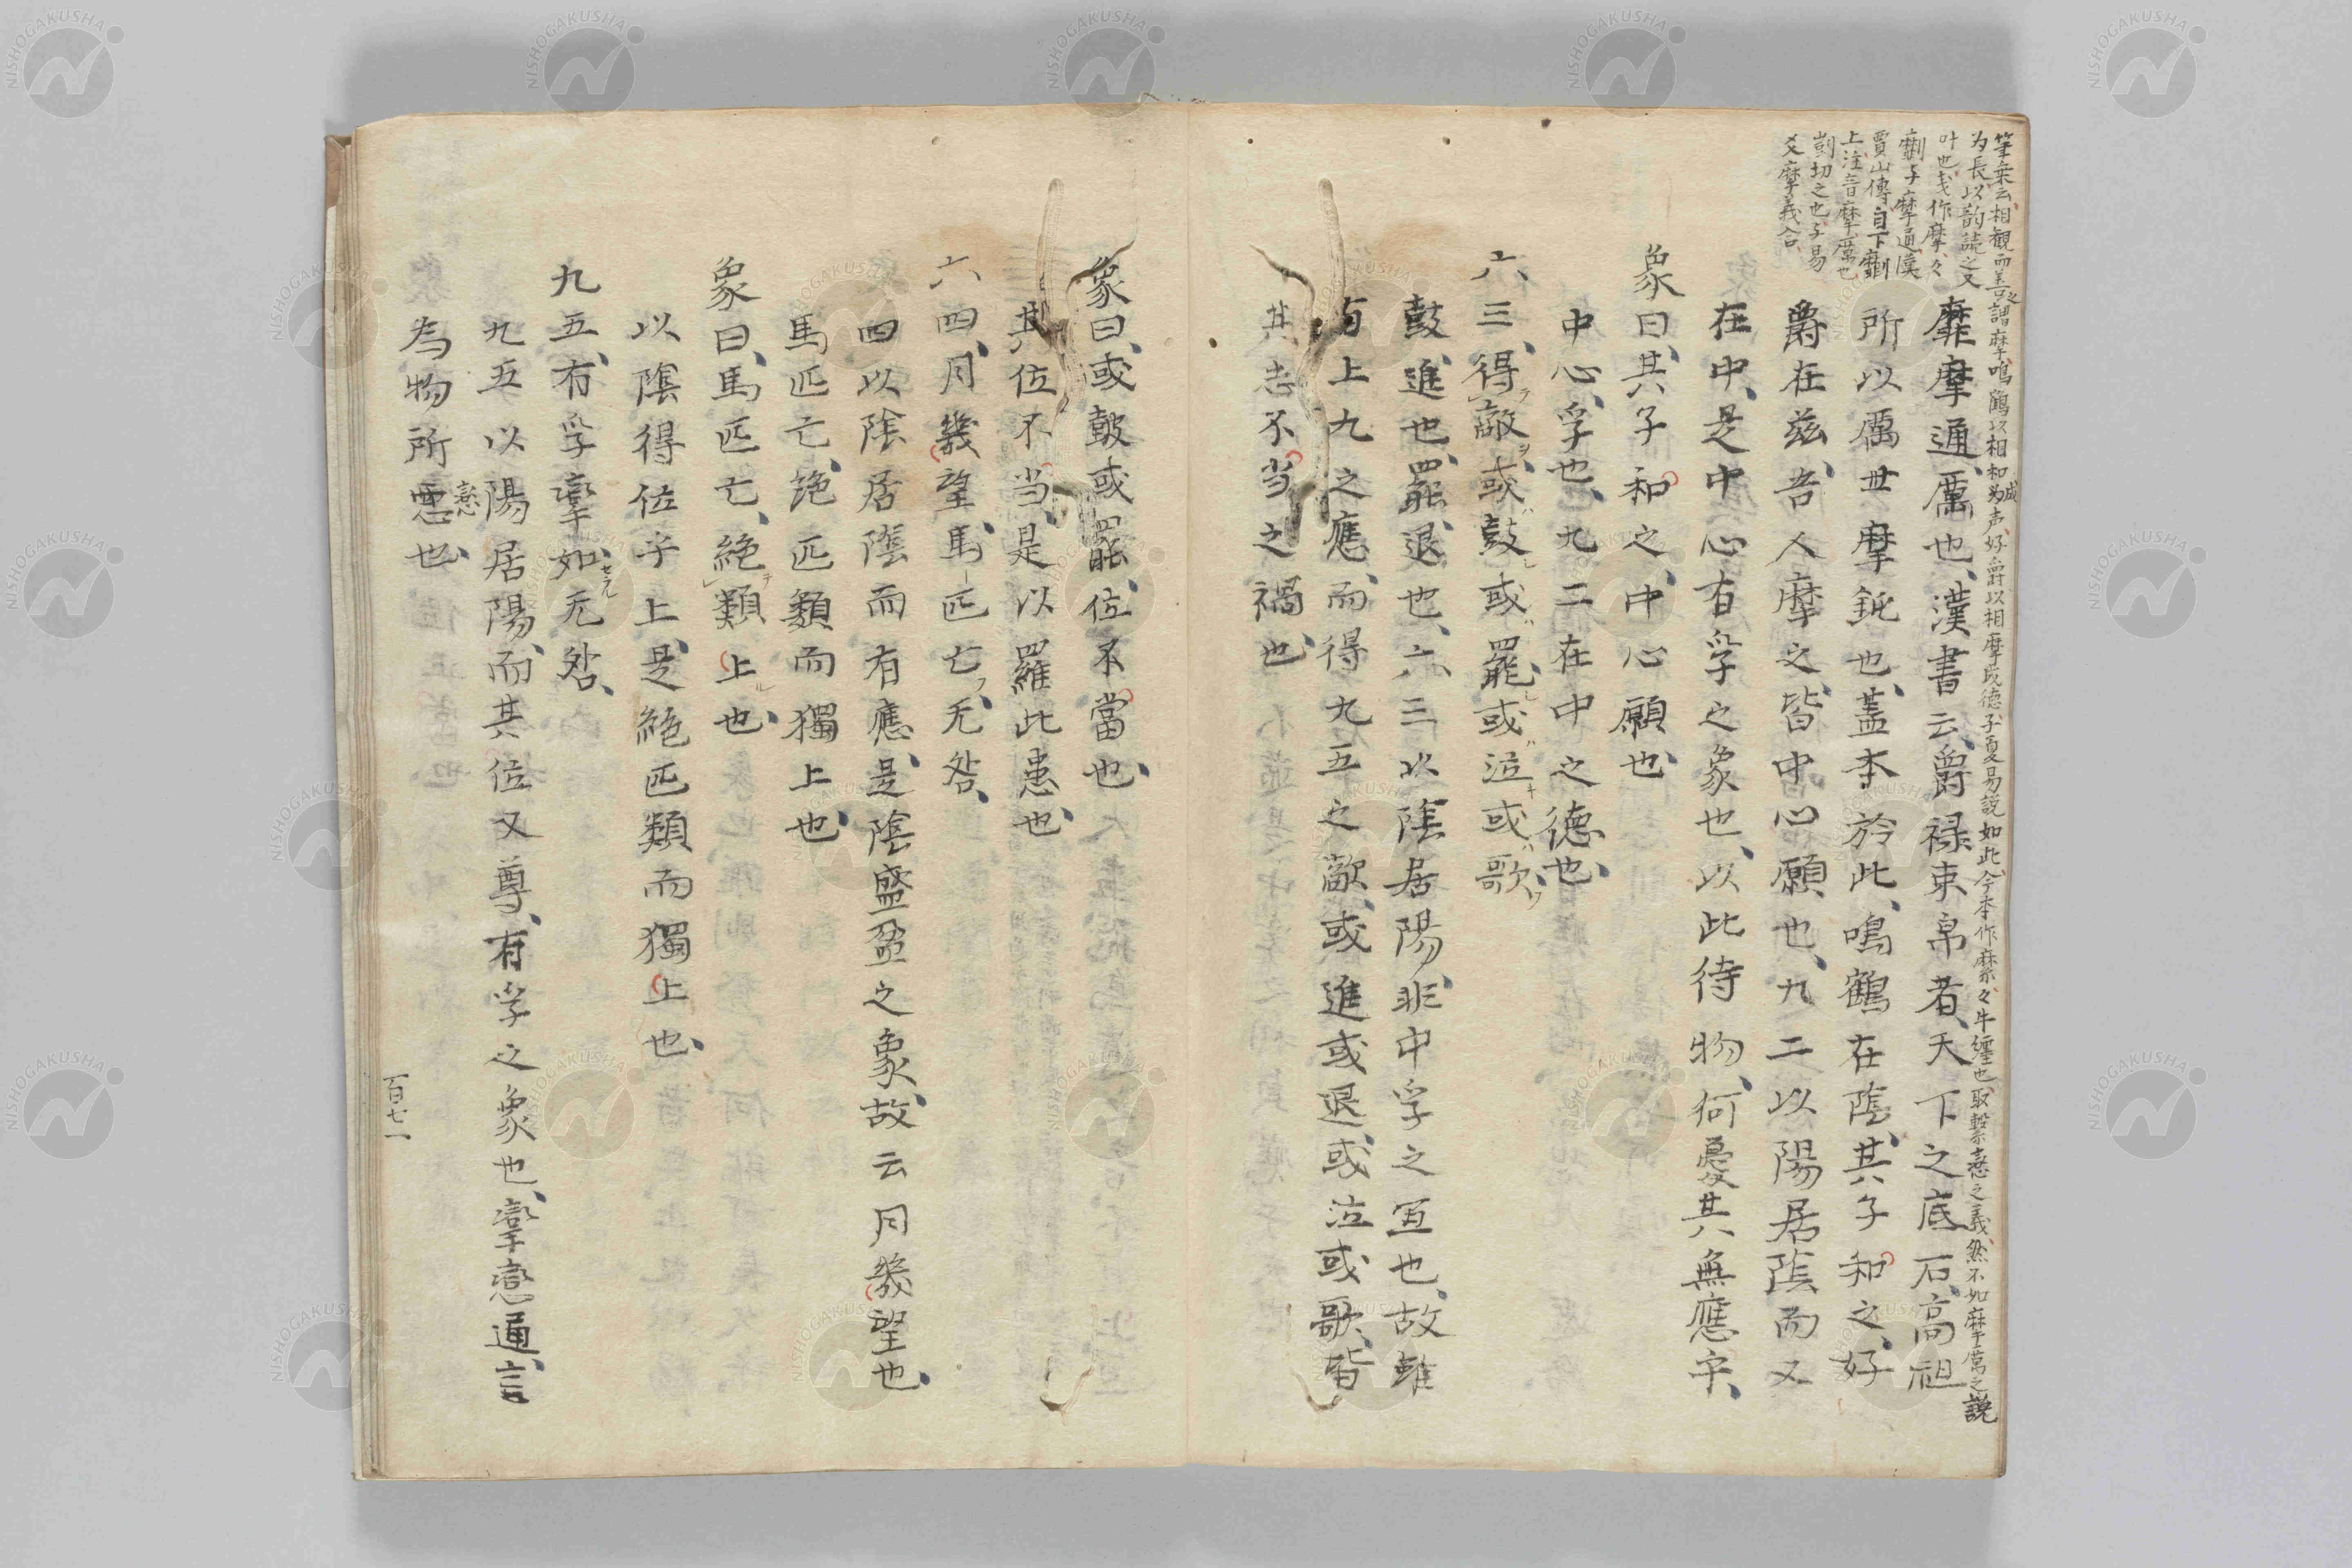 筆乗云、相観而善之謂摩、鳴鶴以相和成声、好爵以相摩成德、子夏易說如此、今本作縻、々牛纏也、取繫戀之義、然不如摩厲之說
为長、以韵読之又
叶也、或作摩、々
劘子摩通、漢
賈山傳自下劘
上注音摩厲也
剴切之也、子易
爻摩義合
靡摩通、厲也、漢書云、爵禄束帛者、天下之底石、高祖
所以厲世摩鈍也、蓋本於此、鳴鶴在陰、其子和之、好
爵在兹、吾人摩之、皆中心願也、九二以陽居陰而又
在中、是中心有孚之象也、以此待物、何憂其無應乎、
象曰、其子和之、中心願也
中心、孚也、九二在中之德也、
六三、得敵、或鼓或罷、或泣或歌、
鼓、進也、罷、退也、六三以陰居陽、非中孚之宜也、故雖
与上九之應、而得九五之敵、或進或退或泣或歌、皆
其志不当之禍也、
象曰、或鼓或罷、位不當也、
其位不当、是以羅此患也、
六四、月幾望、馬匹亡、无咎、
四以陰居陰而有應、是陰盛盈之象、故云月幾望也、
馬匹亡、絶匹類而獨上也、
象曰、馬匹亡、絶類上也、
以陰得位乎上、是絶匹類而獨上也、
九五、有孚攣如、无咎、
九五以陽居陽、而其位又尊、有孚之象也、攣戀通、言
為物所戀也、
戀
百七一